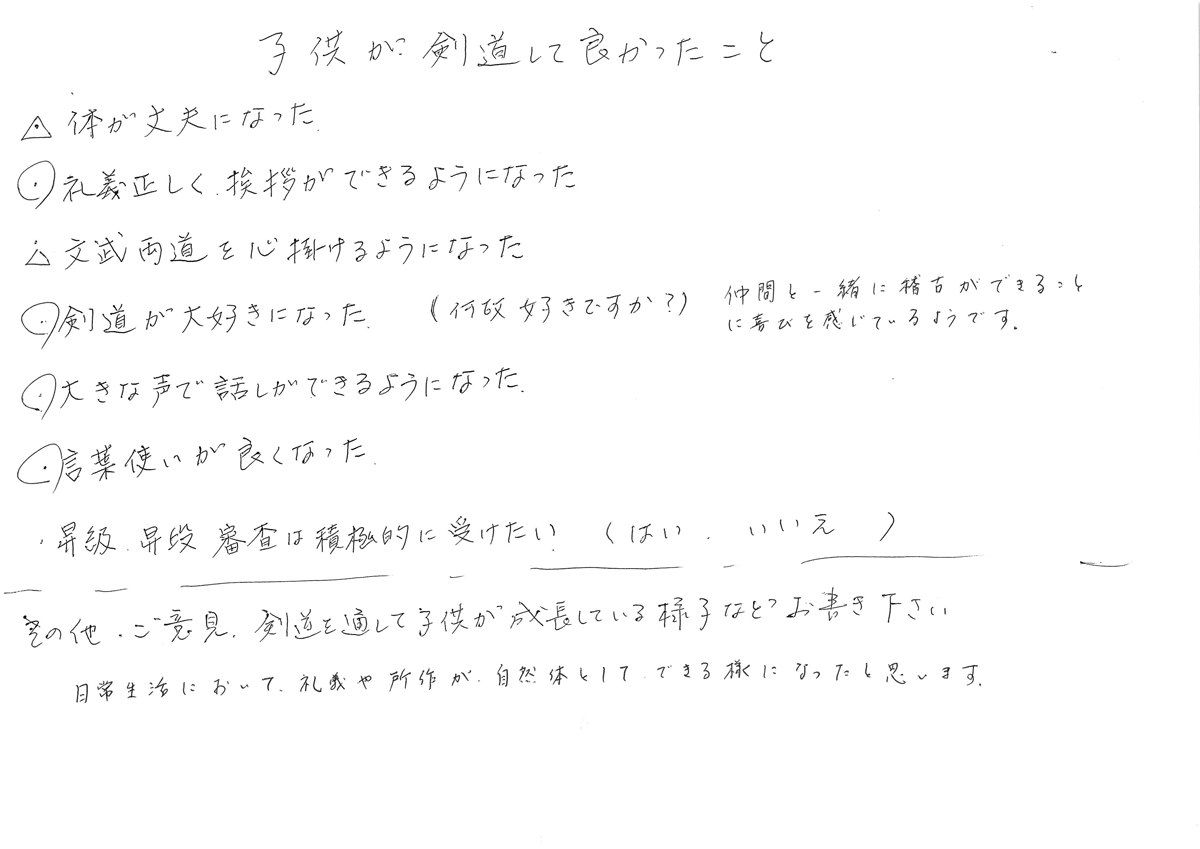 子供が剣道して良かったこと
△ 体が丈夫になった.
○ 礼義正しく.挨拶ができるようになった
△ 文武両道を心掛けるようになった
○ 剣道が大好きになった. (何故好きですか?) 仲間と一緒に稽古ができること
に喜びを感じているようです.
○ 大きな声で話しができるようになった.
○ 言葉使いが良くなった.
・昇級.昇段 審査は積極的に受けたい. (はい . いいえ )
その他.ご意見.剣道を通して子供が成長している様子などお書き下さい
日常生活において、礼義や所作が.自然体として.できる様になったと思います.